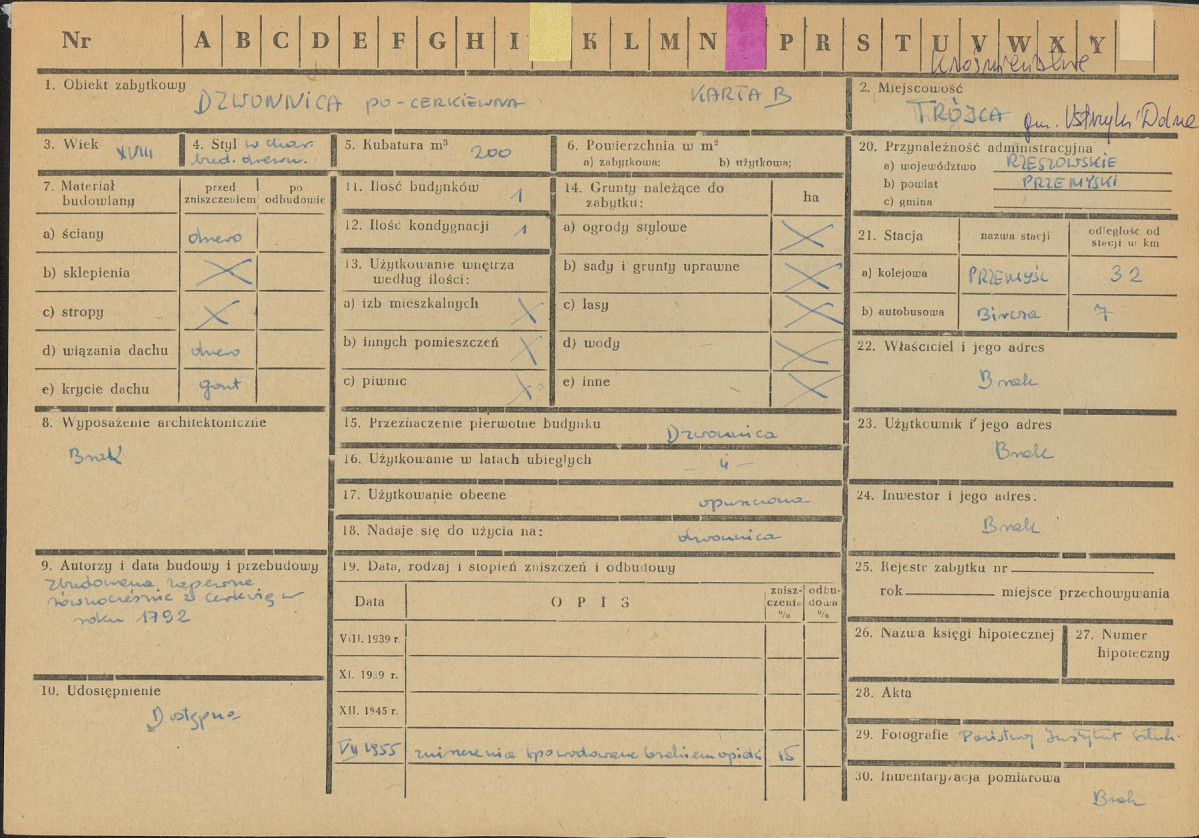 Nr A B C D E F G H I K L M N P R S T U V W X Y
Krośnieńskie
1. Obiekt zabytkowy
DZWONNICA PO-CERKIEWNA KARTA B
2. Miejscowość
TRÓJCA gm. Ustrzyki Dolne
3. Wiek XVIII
4. Styl w char.
bud. drewn.
5. Kubatura m³ 200
6. Powierzchnia w m²
a) zabytkowa: b) użytkowa:
7. Materiał budowlany
przed zniszczeniem
po odbudowie
a) ściany drewno
b) sklepienia X
c) stropy X
d) wiązania dachu drewno
e) krycie dachu gont
8. Wyposażenie architektoniczne
Brak
9. Autorzy i data budowy i przebudowy
Zbudowana zapewne
równocześnie z cerkwią w
roku 1792
10. Udostępnienie
Dostępna
11. Ilość budynków 1
12. Ilość kondygnacji 1
13. Użytkowanie wnętrza
według ilości:
a) izb mieszkalnych X
b) innych pomieszczeń X
c) piwnic X
14. Grunty należące do
zabytku:
ha
a) ogrody stylowe X
b) sady i grunty uprawne X
c) lasy X
d) wody X
e) inne X
15. Przeznaczenie pierwotne budynku Dzwonnica
16. Użytkowanie w latach ubiegłych — " —
17. Użytkowanie obecne opuszczona
18. Nadaje się do użycia na: dzwonnica
19. Data, rodzaj i stopień zniszczeń i odbudowy
Data
O P I S
znisz-
czenia
%
odbu-
dowa
%
VIII. 1939 r.
XI. 1939 r.
XII. 1945 r.
VII 1955 zniszczenia spowodowane brakiem opieki 15
20. Przynależność administracyjna
a) województwo RZESZOWSKIE
b) powiat PRZEMYSKI
c) gmina
21. Stacja
nazwa stacji
odległość od
stacji w km
a) kolejowa PRZEMYŚL 32
b) autobusowa Bircza 7
22. Właściciel i jego adres
Brak
23. Użytkownik i jego adres
Brak
24. Inwestor i jego adres.
Brak
25. Rejestr zabytku nr
rok miejsce przechowywania
26. Nazwa księgi hipotecznej
27. Numer
hipoteczny
28. Akta
29. Fotografie Państwowy Instytut Sztuki
30. Inwentaryzacja pomiarowa
Brak